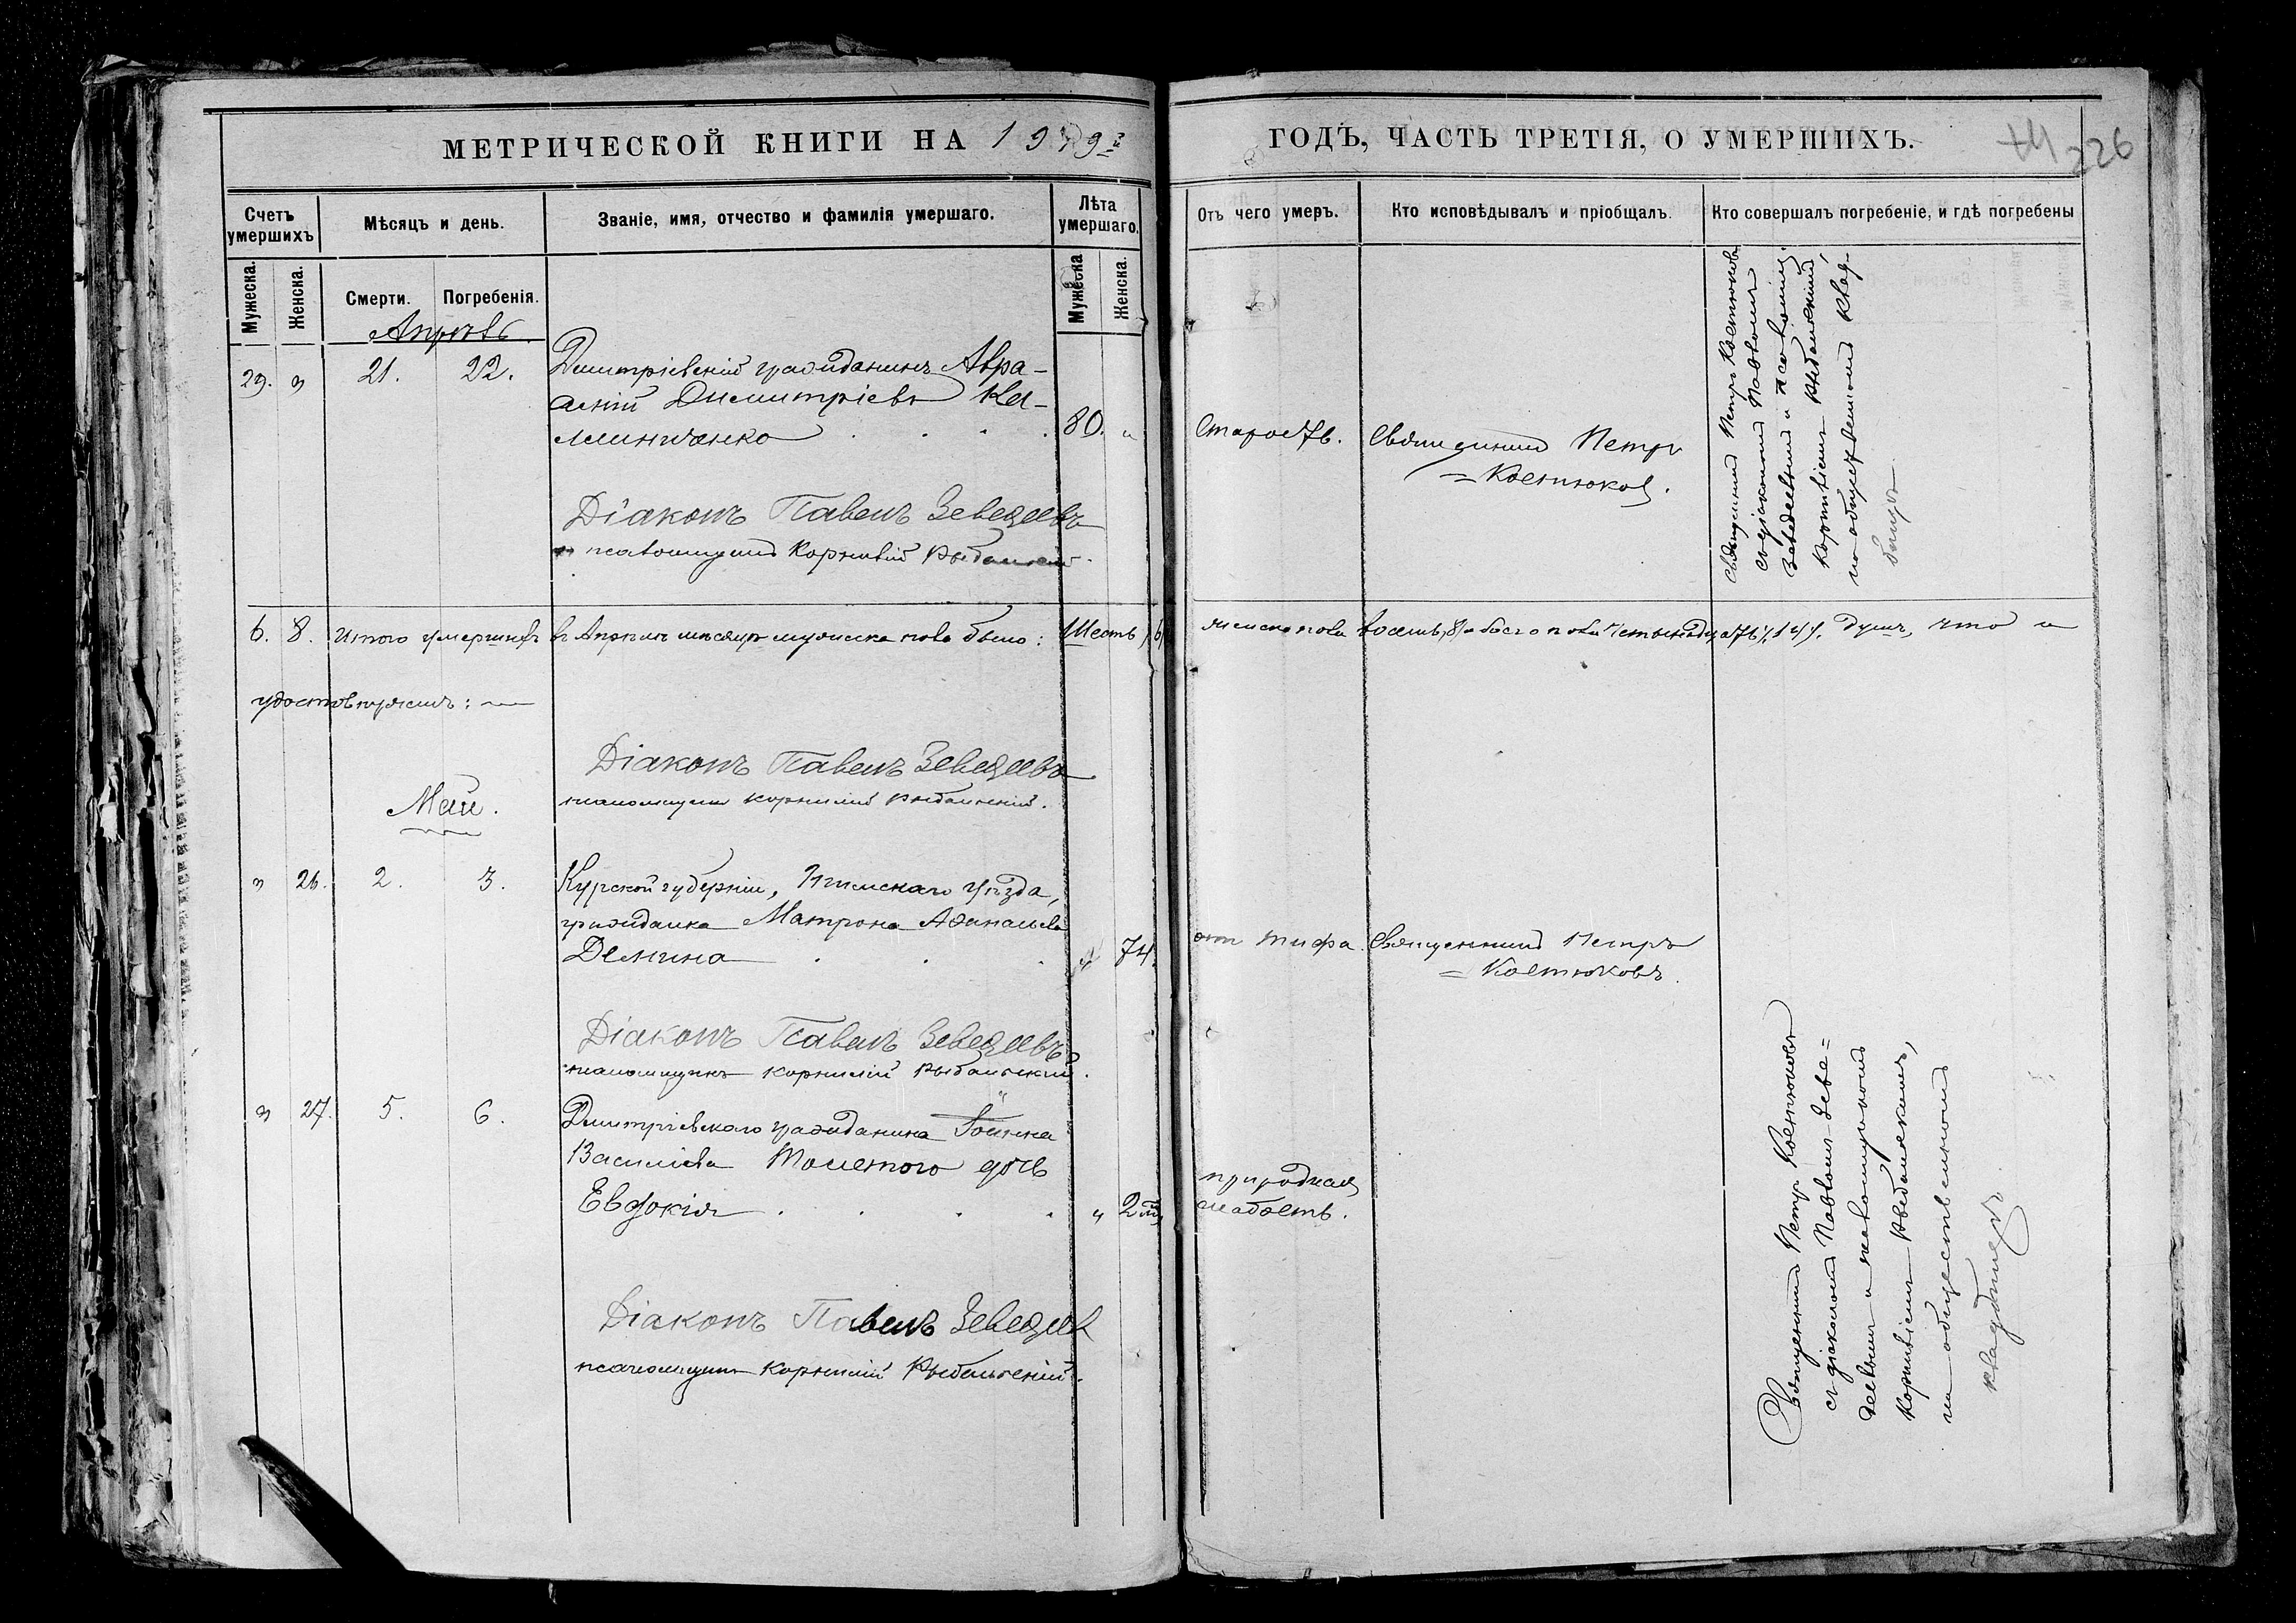 МЕТРИЧЕСКОЙ КНИГИ НА 1919й
ГОДЪ, ЧАСТЬ ТРЕТІЯ, О УМЕРШИХЪ.
226
Счетъ умершихъ
Мѣсяцъ и день.
Званіе, имя, отчество и фамилія умершаго.
Лѣта умершаго.
Отъ чего умеръ.
Кто исповѣдывалъ и пріобщалъ.
Кто совершалъ погребеніе, и гдѣ погребены
Мужеска.
Женска.
Смерти.
Погребенія.
Мужеска
Женска.
Апрѣль
29. " 21. 22.
Димитріевскій гражданинъ Авра-
амій Димитріевъ
80. "
Старость.
Священникъ Петръ
= Костюковъ.
Священникъ Петръ Костюковъ
съ діакономъ Павломъ
Зеведеевымъ и псаломщик.
Корниліемъ Рыбальскимъ,
на общественномъ клад-
бищѣ
Діаконъ Павелъ Зеведеевъ
и псаломщикъ Корнилій Рыбальскій.
6. 8. Итого умершихъ въ Апрѣлѣ мѣсяцѣ мужеска пола было: Шесть /6/
женска пола восемь /8/ обоего пола четырнадцать /14/. душъ, что и
удостовѣряемъ:
Діаконъ Павелъ Зеведеевъ
псаломщикъ Корнилій Рыбальскій.
Май.
" 26. 2. 3.
Курской губерніи, уѣзда,
гражданка Матрона Аѳанасьева
Демина
" 74.
отъ тифа.
Священникъ Петръ
= Костюковъ.
Діаконъ Павелъ Зеведеевъ
псаломщикъ Корнилій Рыбальскій.
" 27. 5. 6.
Димитріевскаго гражданина Іоанна
Василіева Толстого дочь
Евдокія
" 2 м.
природная
слабость.
Священникъ Петръ Костюковъ
съ діакономъ Павломъ Зеве=
деевымъ и псаломщикомъ
Корниліемъ Рыбальскимъ,
на общественномъ
кладбищѣ
Діаконъ Павелъ Зеведеев
псаломщикъ Корнилій Рыбальскій.